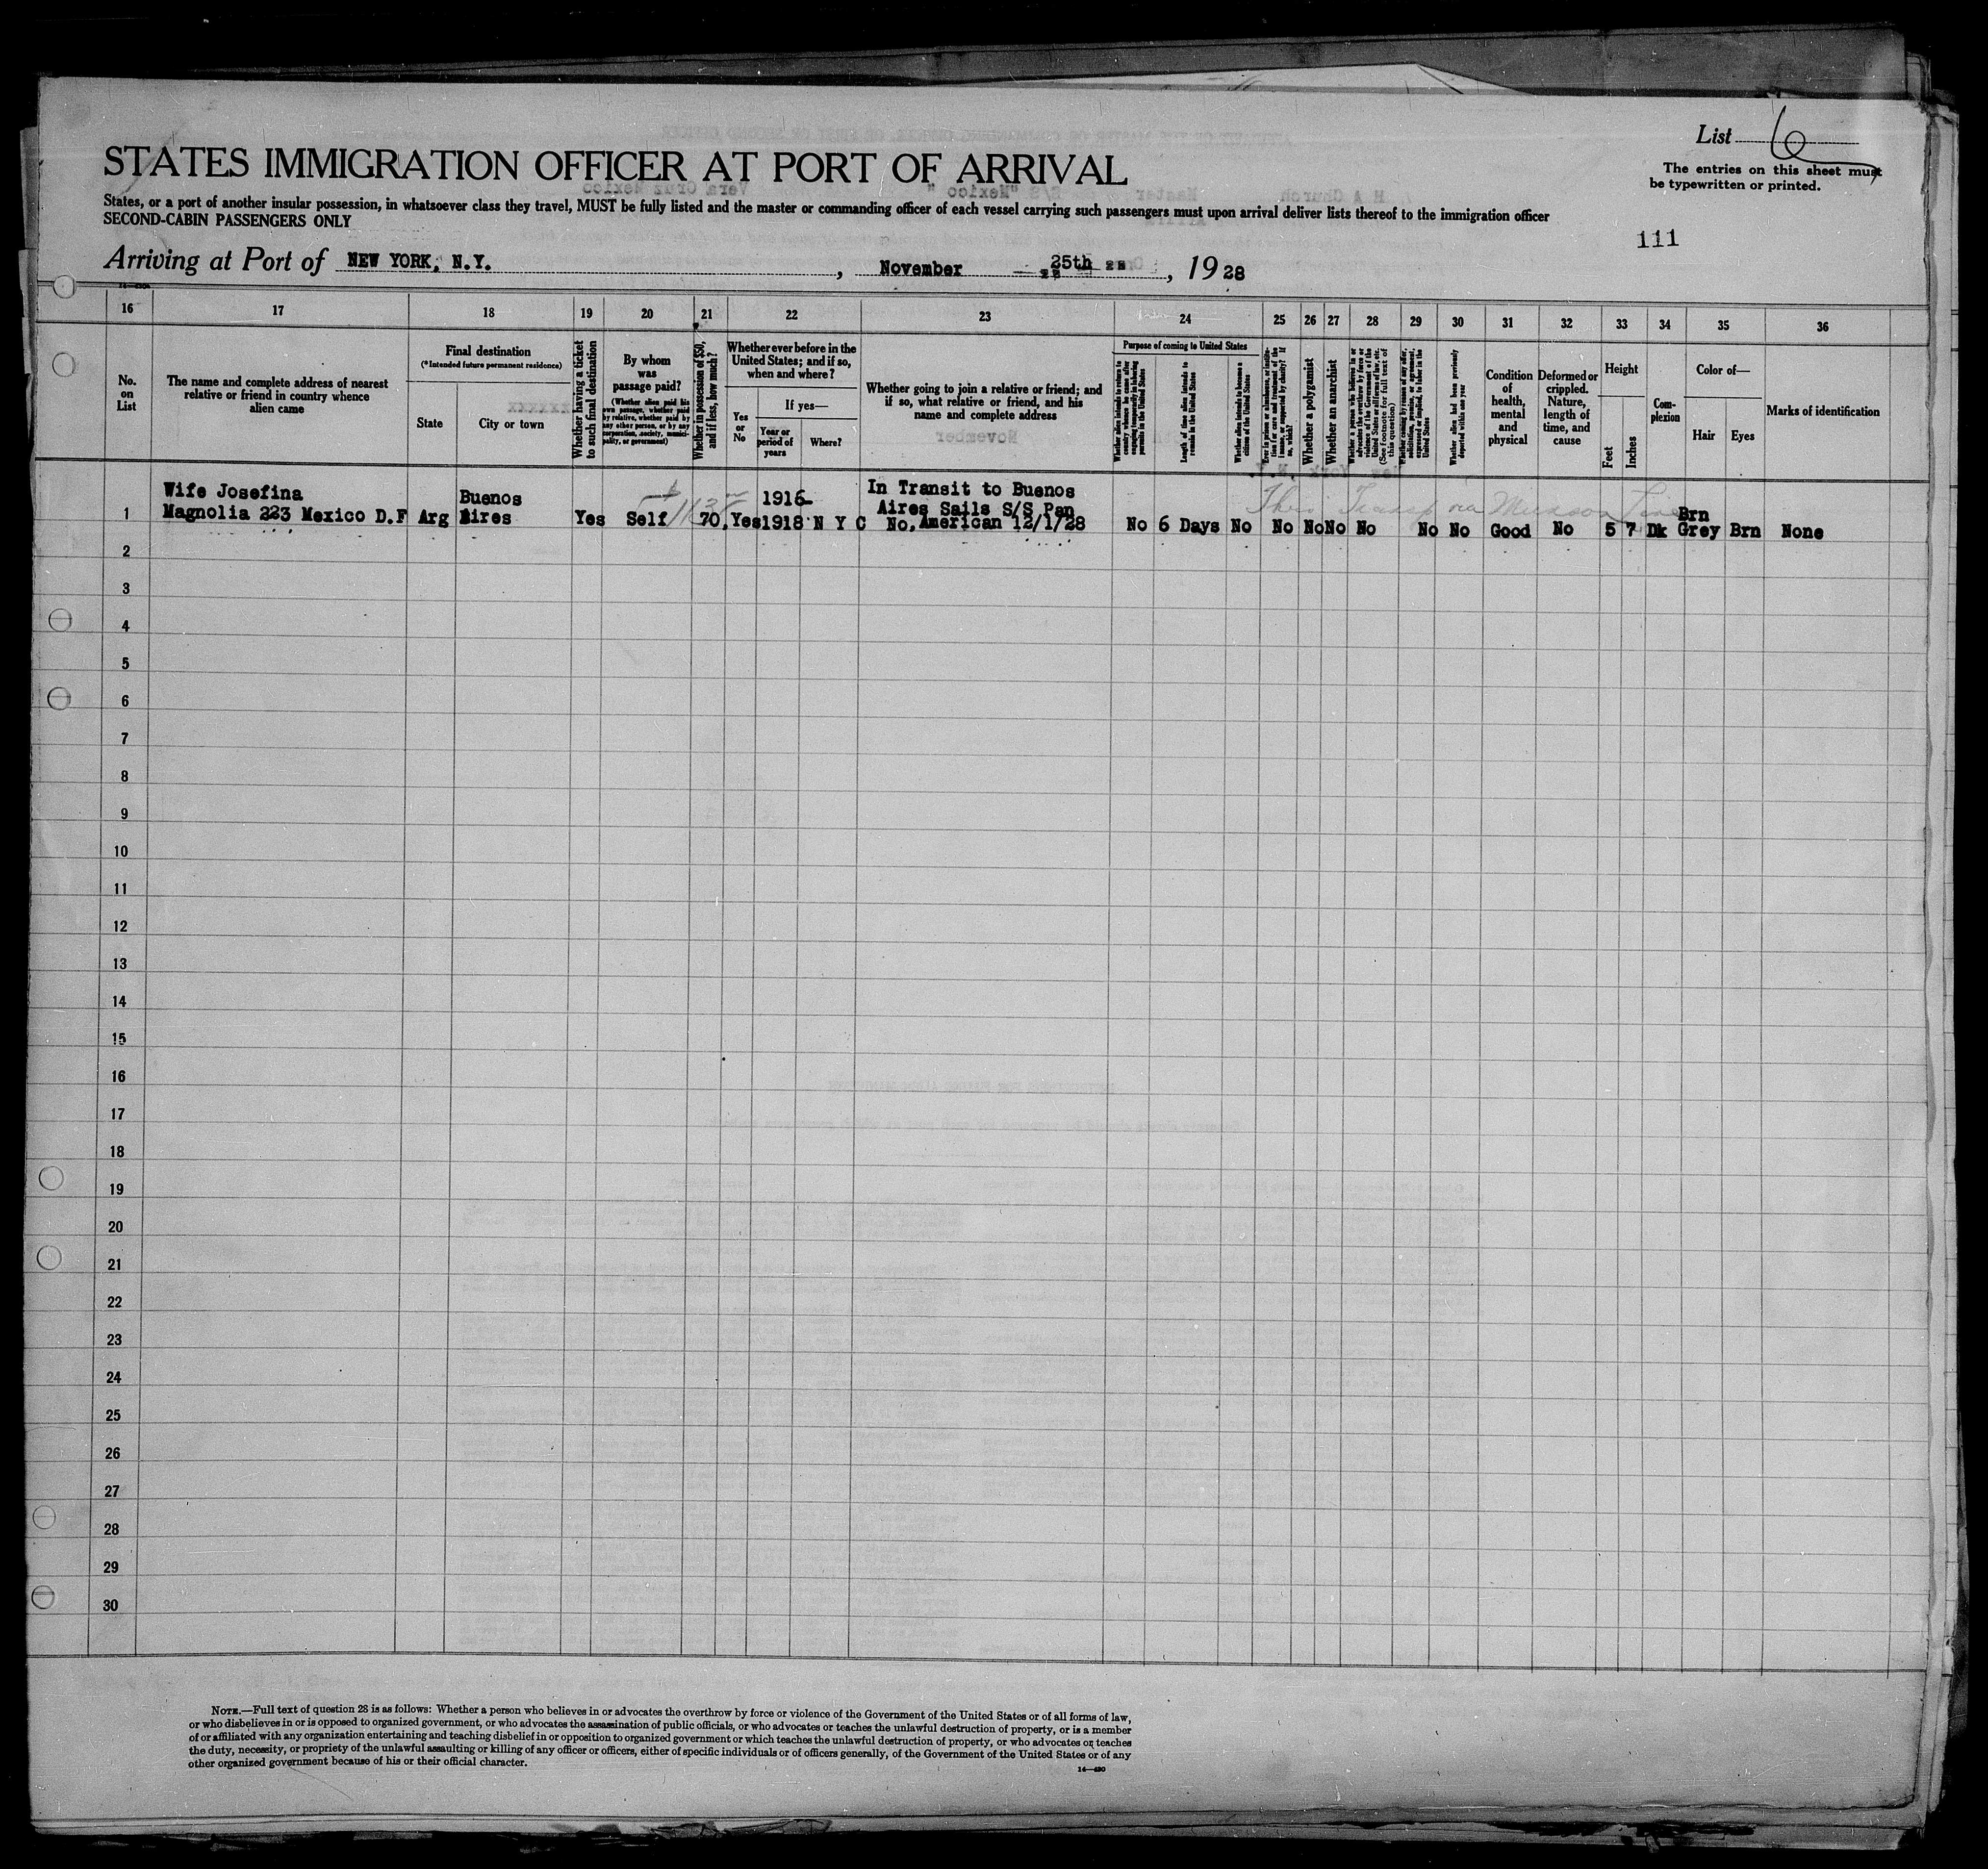 List 6
The entries on this sheet must
be typewritten or printed.
STATES IMMIGRATION OFFICER AT PORT OF ARRIVAL
States, or a port of another insular possession, in whatsoever class they travel, MUST be fully listed and the master or commanding officer of each vessel carrying such passengers must upon arrival deliver lists thereof to the immigration officer
SECOND-CABIN PASSENGERS ONLY
111
Arriving at Port of NEW YORK, N.Y. , November 25th , 1928
16 17 18 19 20 21 22 23 24 25 26 27 28 29 30 31 32 33 34 35 36
No.
on
List
The name and complete address of nearest
relative or friend in country whence
alien came
Final destination
(*Intended future permanent residence)
State
City or town
Whether having a ticket
to such final destination
By whom
was
passage paid?
(Whether alien paid his
own passage, whether paid
by relative, whether paid by
any other person, or by any
corporation, society, munici-
pality, or government)
Whether in possession of $50,
and if less, how much?
Whether ever before in the
United States; and if so,
when and where?
Yes
or
No
If yes—
Year or
period of
years
Where?
Whether going to join a relative or friend; and
if so, what relative or friend, and his
name and complete address
Purpose of coming to United States
Whether alien intends to return to
country whence he came after
engaging temporarily in laboring
pursuits in the United States
Length of time alien intends to
remain in the United States
Whether alien intends to become a
citizen of the United States
Ever in prison or almshouse, or institu-
tion for care and treatment of the
insane, or supported by charity? If
so, which?
Whether a polygamist
Whether an anarchist
Whether a person who believes in or
advocates the overthrow by force or
violence of the Government of the
United States or all forms of law, etc.
(See footnote for full text of
this question)
Whether coming by reason of any offer,
solicitation, promise, or agreement,
expressed or implied, to labor in the
United States
Whether alien had been previously
deported within one year
Condition
of
health,
mental
and
physical
Deformed or
crippled.
Nature,
length of
time, and
cause
Height
Feet
Inches
Com-
plexion
Color of—
Hair
Eyes
Marks of identification
Wife Josefina
1 Magnolia 223 Mexico D.F
Arg
Buenos
Aires
Yes Self 70, Yes
1916-
1918 N Y C
In Transit to Buenos
Aires Sails S/S Pan
No, American 12/1/28
Transp via Munson Line
No 6 Days No No No No No No No Good No 5 7 Dk
Brn
Grey Brn None
2
3
4
5
6
7
8
9
10
11
12
13
14
15
16
17
18
19
20
21
22
23
24
25
26
27
28
29
30
NOTE.—Full text of question 28 is as follows: Whether a person who believes in or advocates the overthrow by force or violence of the Government of the United States or of all forms of law,
or who disbelieves in or is opposed to organized government, or who advocates the assassination of public officials, or who advocates or teaches the unlawful destruction of property, or is a member
of or affiliated with any organization entertaining and teaching disbelief in or opposition to organized government or which teaches the unlawful destruction of property, or who advocates or teaches
the duty, necessity, or propriety of the unlawful assaulting or killing of any officer or officers, either of specific individuals or of officers generally, of the Government of the United States or of any
other organized government because of his or their official character.
14—430